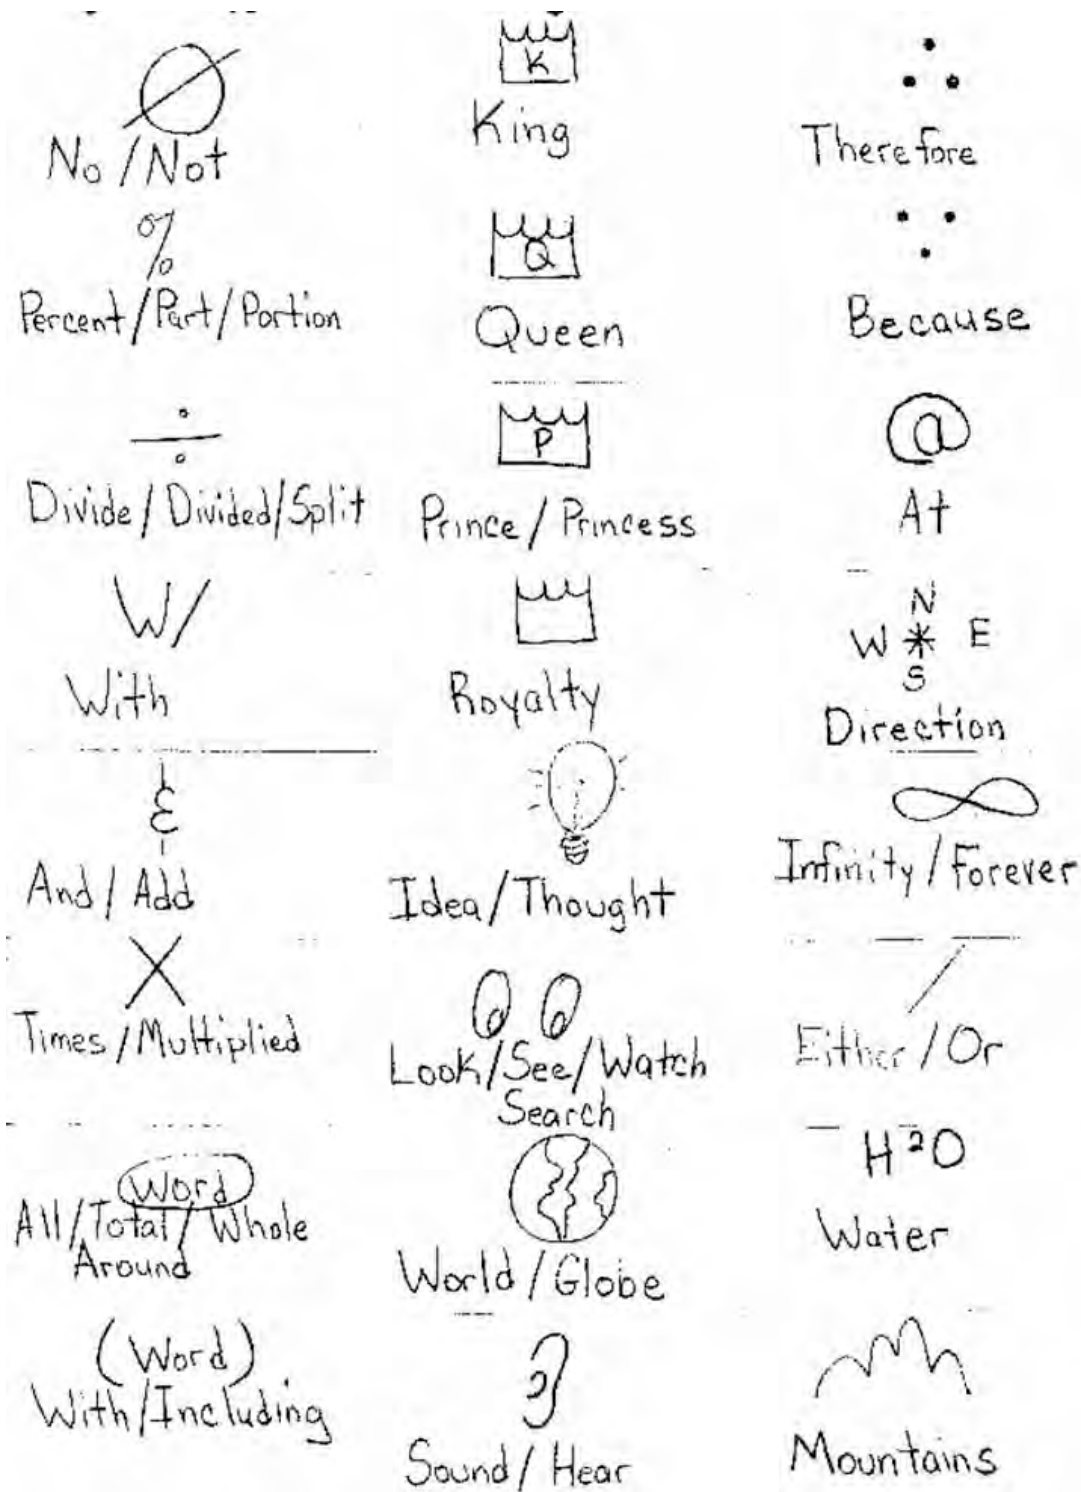 No / Not
%
Percent / Part / Portion
÷
Divide / Divided / Split
W/
With
&
And / Add
X
Times / Multiplied
Word
All / Total / Whole
Around
(Word)
With / Including
K
King
Q
Queen
P
Prince / Princess
Royalty
Idea / Thought
Look / See / Watch
Search
World / Globe
Sound / Hear
∴
Therefore
∵
Because
@
At
N
W * E
S
Direction
∞
Infinity / Forever
/
Either / Or
H²O
Water
Mountains